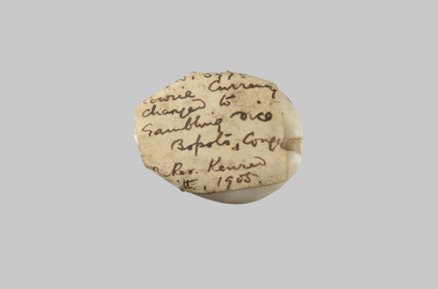 Cowrie Currency
changed to
Gambling dice
Bopoto, Congo
Rev. Kenred
II, 1905.